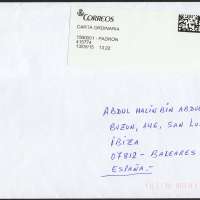 CORREOS
CARTA ORDINARIA
1590901 - PADRON
415774
13/05/15 13:22
ABDUL HALIN BIN ABDUL
BUZON, 446, SAN LU
IBIZA
07812 - BALEARES
ESPAÑA.-